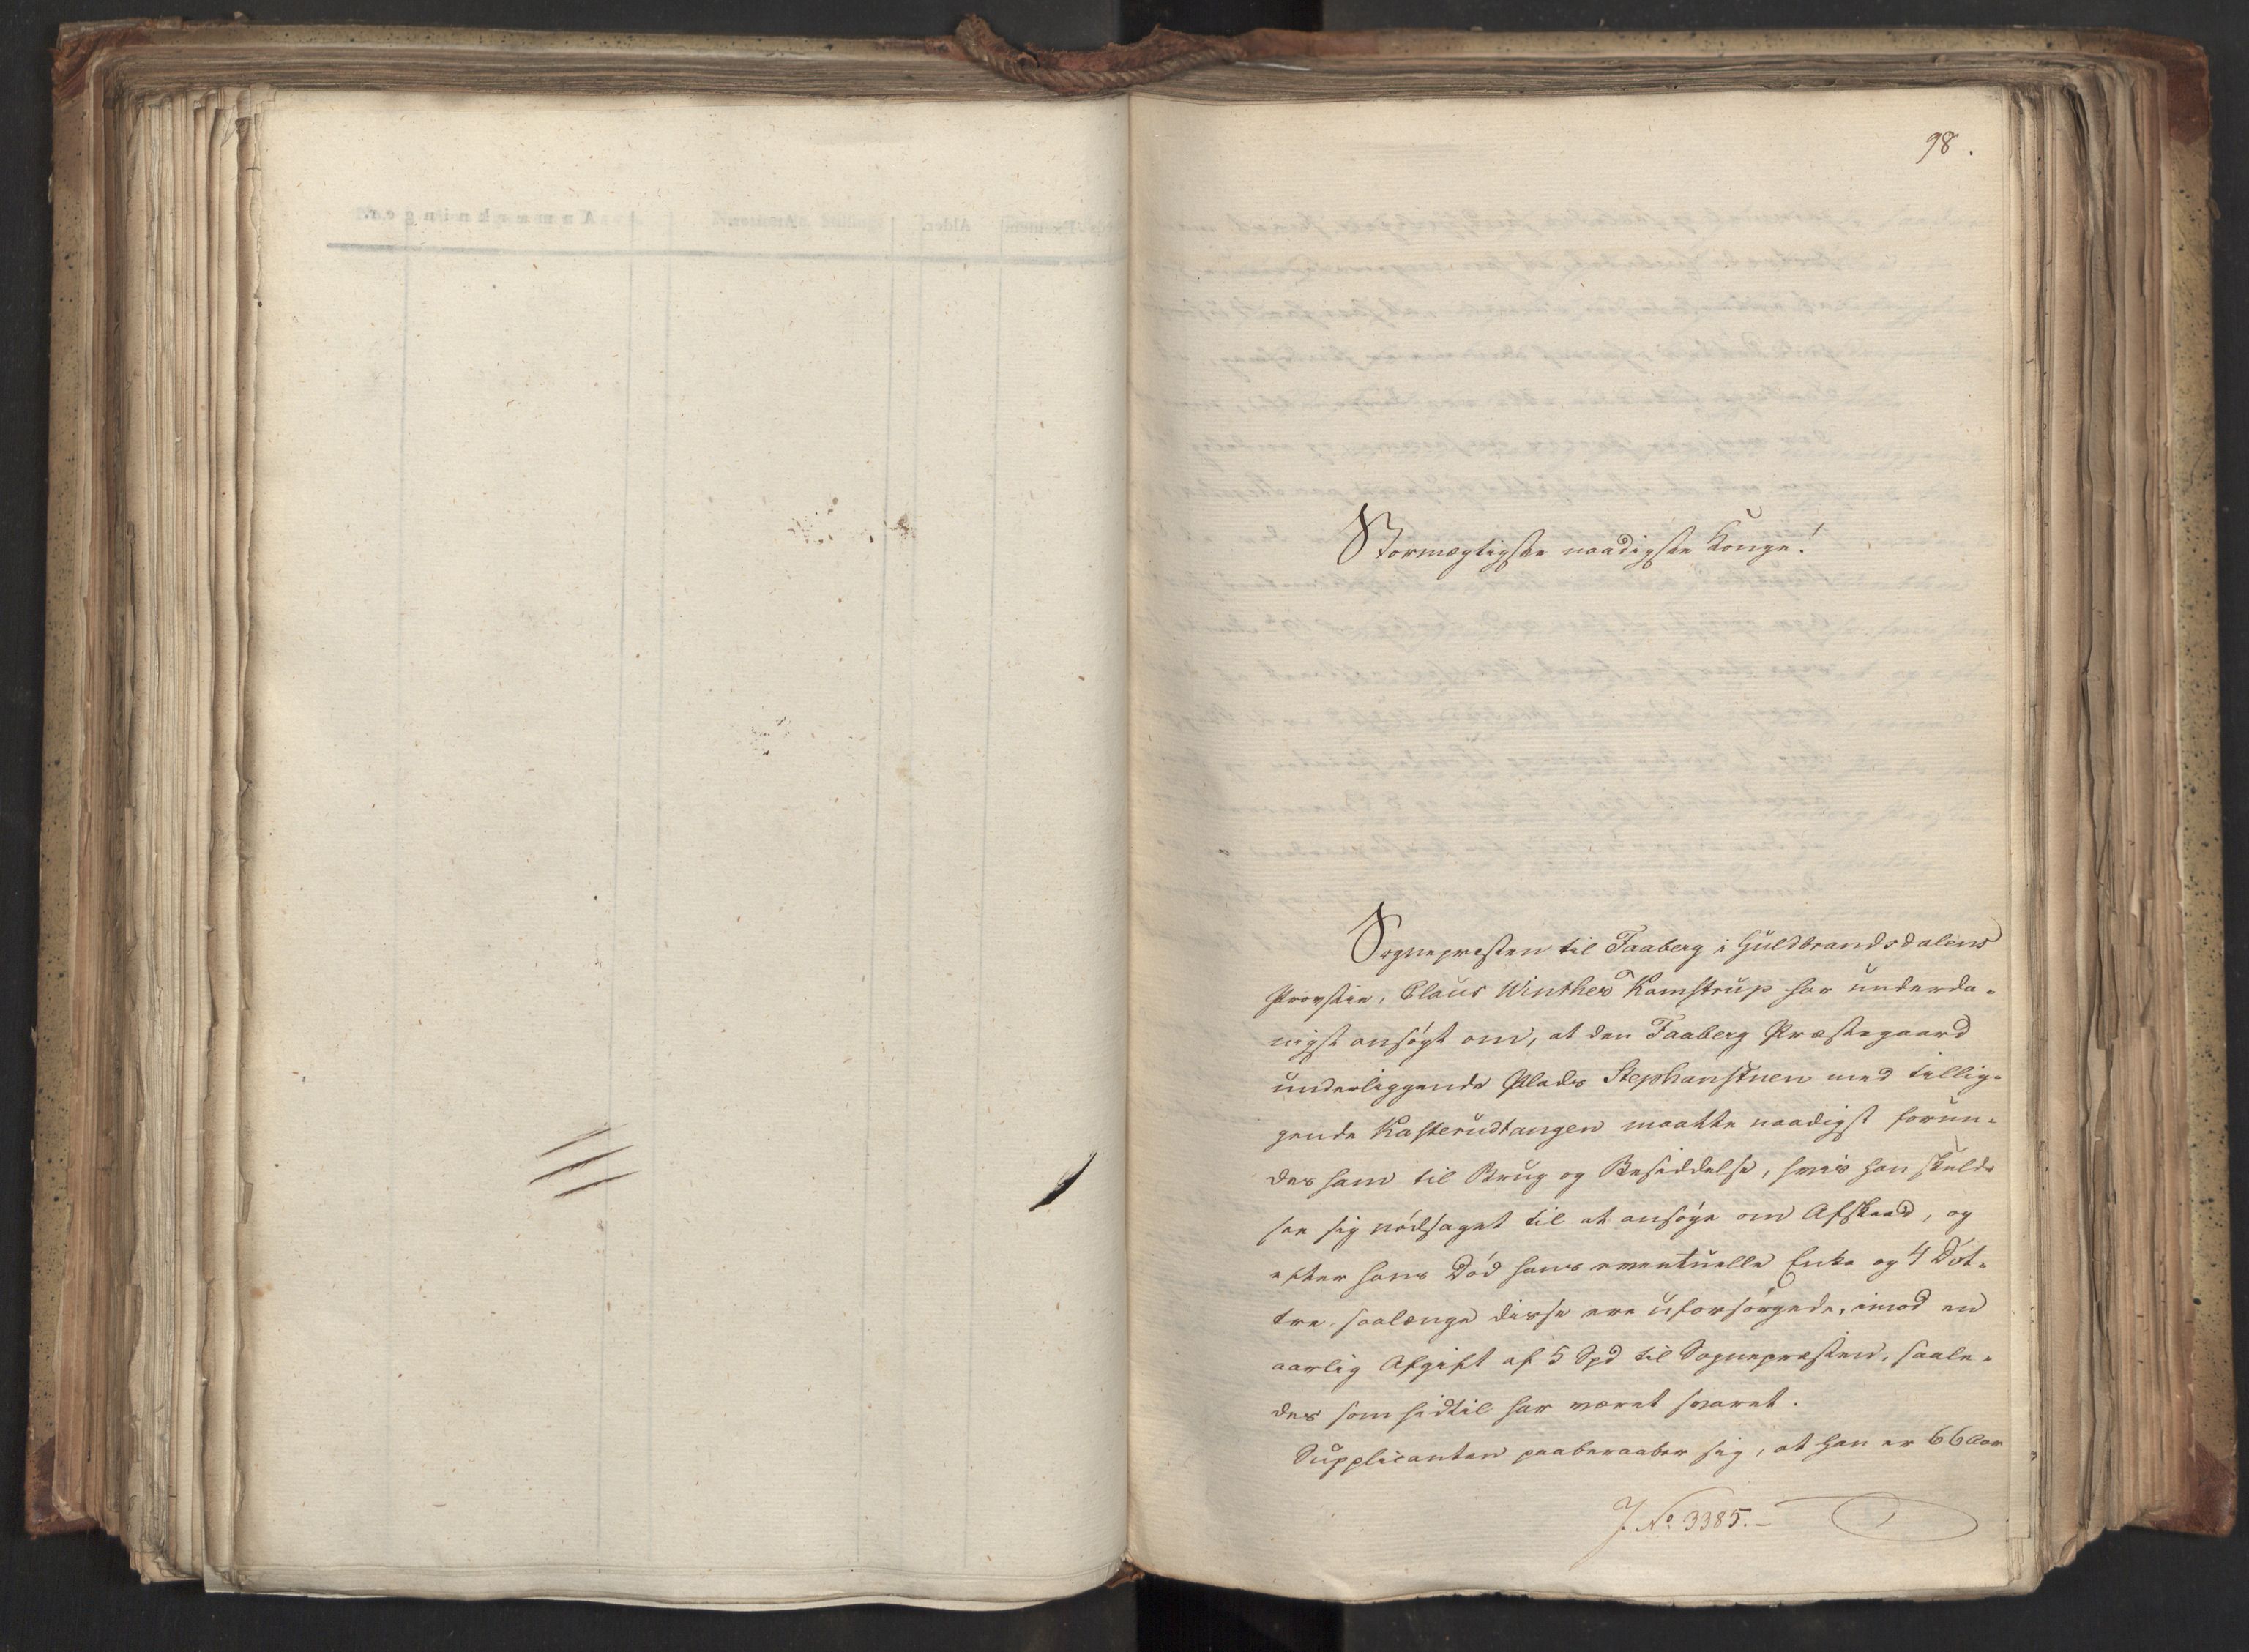 98.
Stormægtigste naadigste Konge!
Sognepresten til Faaberg i Guldbrandsdalens
Provstie, Claus Winther Kamstrup har underda-
nigst ansøgt om, at den Faaberg Præstegaard
underliggende Plads Stephanstuen med tillig-
gende Kasterudtangen maatte naadigst forun-
des ham til Brug og Besiddelse, hvis han skulde
see sig nødsaget til at ansøge om Afskeed, og
efter hans Død hans eventuelle Enke og 4 Døt-
tre, saalænge disse ere uforsørgede, imod en
aarlig Afgift af 5 Spd til Sognepresten, saale-
des som hidtil har været svaret.
Supplicanten paaberaaber sig, at han er 66 Aar
J. No 3385.-